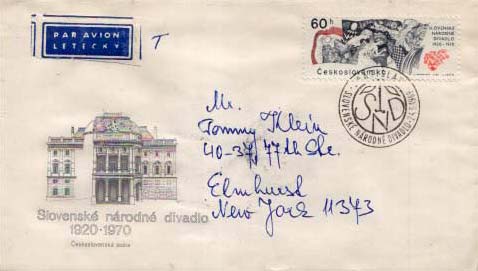 PAR AVION
LETECKY
T
60 h
SLOVENSKÉ
NÁRODNÉ
DIVADLO
1920-1970
Československo
SND
SLOVENSKÉ NÁRODNÉ DIVADLO
Mr.
Tommy Klein
40-37, 77th Str.
Elmhurst
New York 11373
Slovenské národné divadlo
1920-1970
Československá